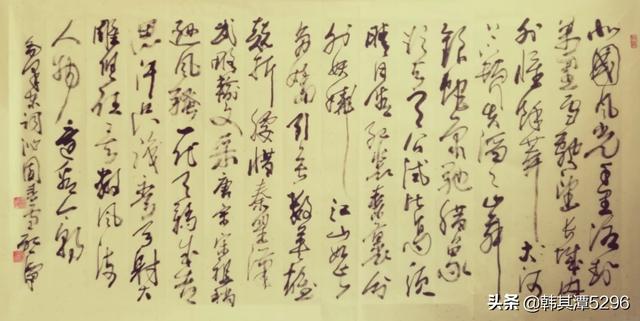 北國風光千里冰封
萬里雪飄望長城內
外惟餘莽莽大河
上下頓失滔滔山舞
銀蛇原馳蠟象
欲與天公試比高須
晴日看紅裝素裹分
外妖嬈江山如此
多嬌引無數英雄
競折腰惜秦皇漢
武略輸文采唐宗宋祖稍
遜風騷一代天驕成吉
思汗只識彎弓射大
雕俱往矣數風流
人物還看今朝
毛澤東詞沁園春雪
头条 @韩其潭5296